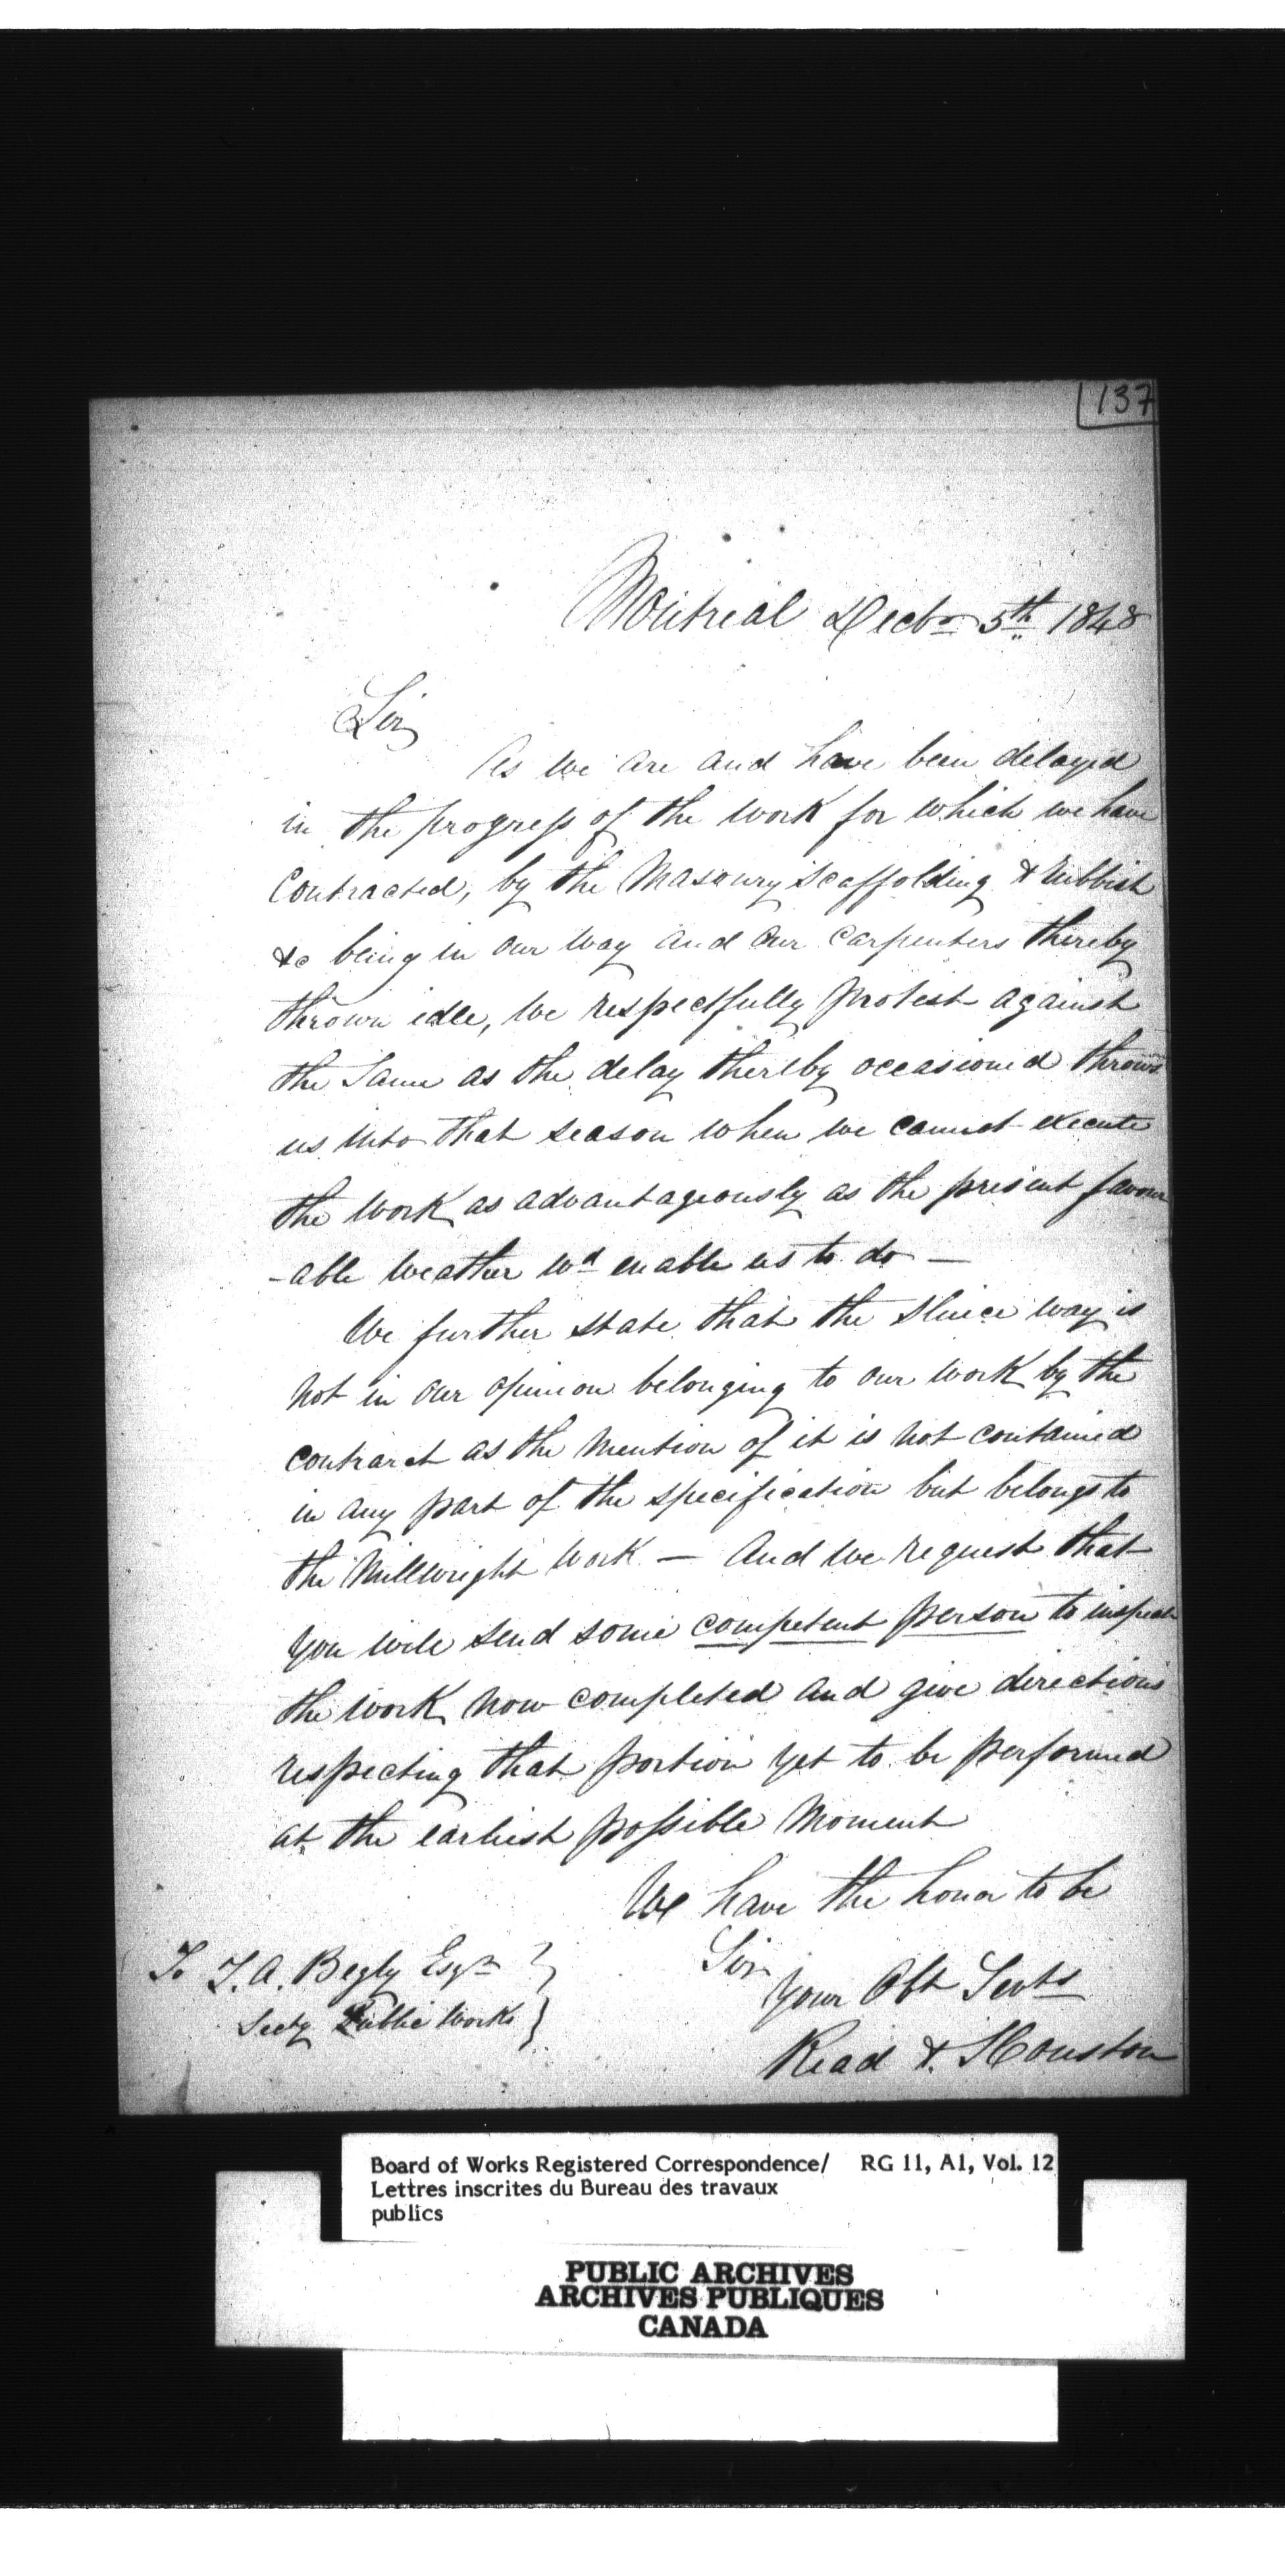 137
Montreal Decbr 5th 1848
Sir
As we are and have been delayed
in the progress of the work for which we have
contracted, by the Masonry Scaffolding & rubbish
&c being in our way and our carpenters thereby
thrown idle, we respectfully protest against
the same as the delay thereby occasioned throws
us into that season when we cannot execute
the work as advantageously as the present favour
-able weather wd enable us to do —
We further state that the Sluice way is
not in our opinion belonging to our work by the
contract as the mention of it is not contained
in any part of the specification but belongs to
the Millwright work — And we request that
you will send some competent person to inspect
the work now completed and give directions
respecting that portion yet to be performed
at the earliest possible moment
We have the honor to be
Sir
Your Obt Servts
Read & Houston
To T. A. Begly Esqr
Secty Public Works
Board of Works Registered Correspondence/ RG 11, A1, Vol. 12
Lettres inscrites du Bureau des travaux
publics
PUBLIC ARCHIVES
ARCHIVES PUBLIQUES
CANADA